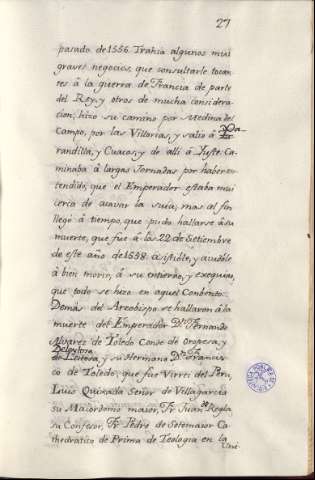 27
pasado de 1556. Trahia algunos mui
graves negocios, que consultarle tocan
tes â la guerra de Francia de parte
del Rey, y otros de mucha considera
cion; hizo su camino por Medina del
Campo, por las Villorias, y salio â Xa-
randilla, y Cuacos, y de alli â Juste. Ca
minaba â largas Jornadas por haber en
tendido, que el Emperador estaba mui
cerca de acavar la suia; mas al fin
llegó â tiempo, que pudo hallarse â su
muerte, que fue â las 22 de Setiembre
de este año de 1558. âsistiole, y aiudole
â bien morir, â su entierro, y exequias,
que todo se hizo en aquel Conbento.
Demas del Arzobispo se hallaron â la
muerte del Emperador Dn. Fernando
Alvarez de Toledo Conde de Oropesa, y
Deleytosa, y su Hermano Dn. Francis
co de Toledo, que fue Virrei del Perú,
Luis Quixada Señor de Villagarcia
su Maiordomo maior, Fr. Juan de Regla
su Confesor, Fr. Pedro de Sotomaior Ca
thedratico de Prima de Teologia en la
Uni-